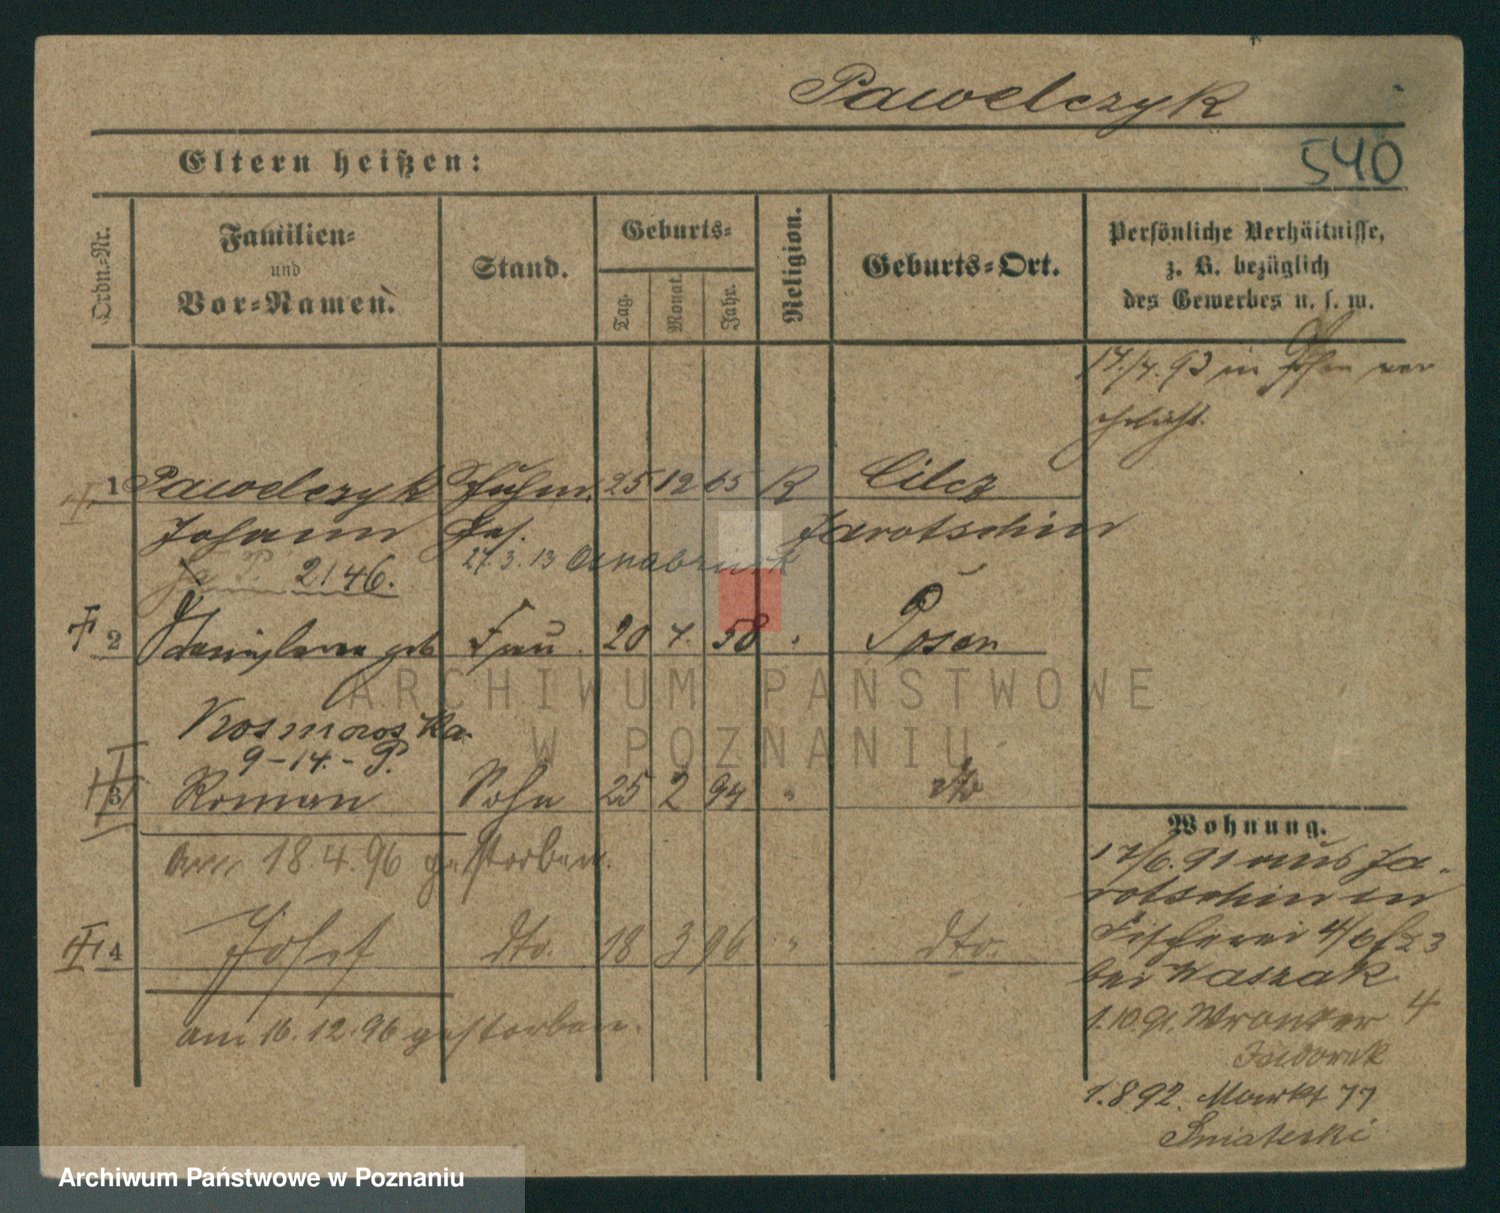 Pawelczyk
Eltern heißen:
540
Ordn.-Nr.
Familien-
und
Vor-Namen.
Stand.
Geburts-
Tag.
Monat.
Jahr.
Religion.
Geburts-Ort.
Persönliche Verhältnisse,
z. B. bezüglich
des Gewerbes u. s. w.
17./4. 93 in Posen ver
ehelicht.
1 Pawelczyk 25 12 65 R Cilcz
Johann Jarotschin
2146. 27.3.13 Osnabrück
2 geb Frau 20 4. 58 " Posen
Kosmowska.
9-14.-P.
3 Roman Sohn 25 2 94 " dto
am 18.4.96 gestorben.
4 Josef dto. 18 3 96 " dto.
am 16.12.96 gestorben.
Wohnung.
17/6. 91 aus Ja-
rotschin in
Fischerei 4/6 23
bei Waszak
1.10.91. Wronker 4
1.8 92. Markt 77
ARCHIWUM PAŃSTWOWE
W POZNANIU
Archiwum Państwowe w Poznaniu